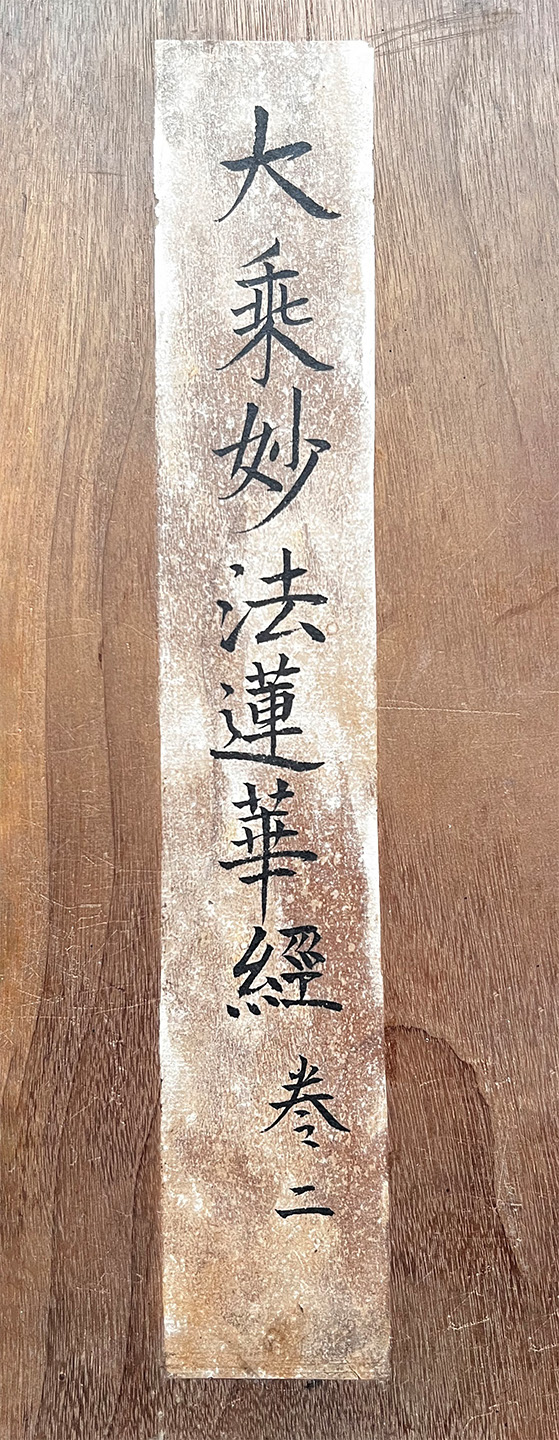 大乘妙法蓮華經 卷二